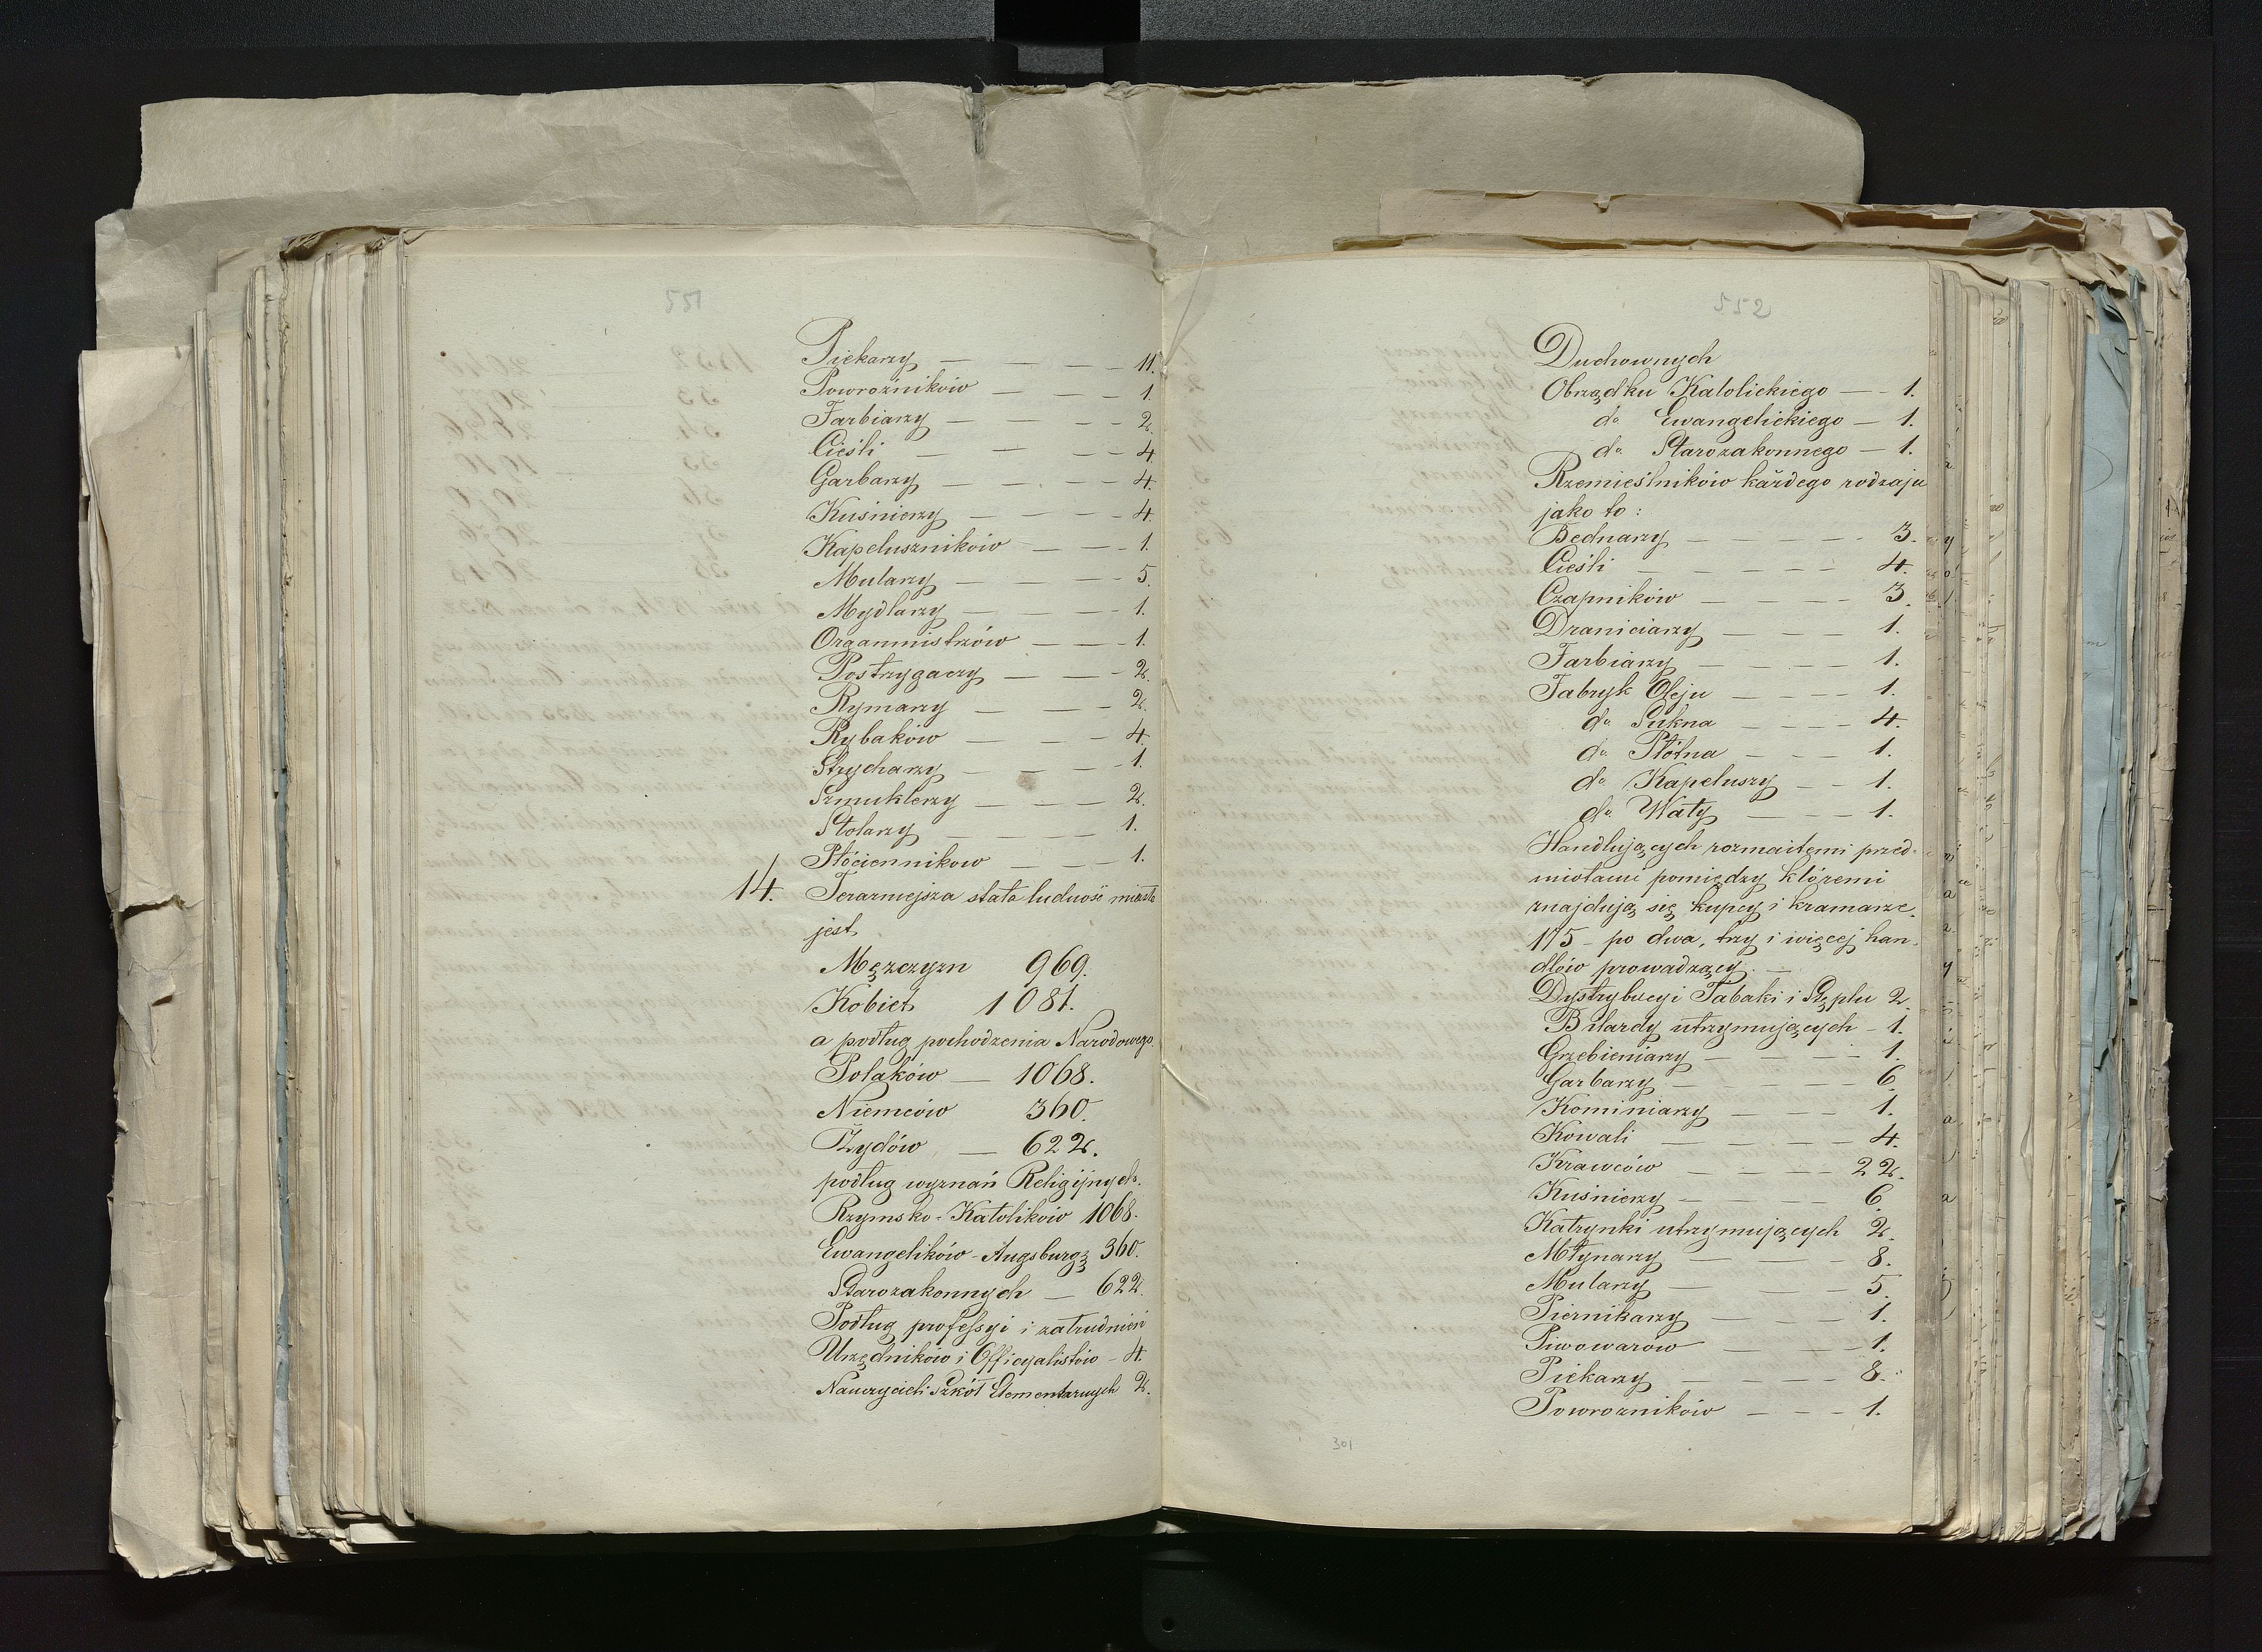 551
Piekarzy — — — — 11.
Powroźników — — — 1.
Farbiarzy — — — — 2.
Cieśli — — — — 4.
Garbarzy — — — — 4.
Kuśnierzy — — — — 4.
Kapeluszników — — — 1.
Mularzy — — — — 5.
Mydlarzy — — — — 1.
Organmistrzów — — — 1.
Postrzygaczy — — — 2.
Rymarzy — — — 2.
Rybaków — — — 4.
Strycharzy — — — — 1.
Szmuklerzy — — — 2.
Stolarzy — — — — 1.
Płóciennikow — — — 1.
14. Terazniejsza stała ludność miasta
jest
Męzczyzn 969.
Kobiet 1081.
a podług pochodzenia Narodowego.
Polaków — 1068.
Niemców 360.
Żydów — 622.
podług wyznań Religijnych.
Rzymsko-Katolików 1068.
Ewangelików-Augsburgz 360.
Starozakonnych — 622.
Podług professyi i zatrudnień
Urzędników i Officyalistów — 4.
Nauczycieli szkół Elementarnych 2.
552
Duchownych
Obrządku Katolickiego — 1.
do Ewangelickiego — 1.
do Starozakonnego — 1.
Rzemieślników każdego rodzaju
jako to:
Bednarzy — — — — — 3.
Cieśli — — — — — 4.
Czapników — — — — 3.
Draniciarzy — — — — 1.
Farbiarzy — — — — 1.
Fabryk Oleju — — — — 1.
do Sukna — — — — 4.
do Płótna — — — 1.
do Kapeluszy — — 1.
do Waty — — — 1.
Handlujących rozmaitemi przed-
miotami pomiędzy któremi
znajdują się kupcy i kramarze.
115 - po dwa, trzy i więcej han-
dlów prowadzący. —
Dystrybucyi Tabaki i Stęplu 2.
Bilardy utrzymujących — 1.
Grzebieniarzy — — — — 1.
Garbarzy — — — — 6.
Kominiarzy — — — 1.
Kowali — — — — — 4.
Krawców — — — — 22.
Kuśnierzy — — — — 6.
Katrynki utrzymujących 2.
Młynarzy — — — — 8.
Mularzy — — — 5.
Piernikarzy — — — 1.
Piwowarów — — — 1.
Piekarzy — — — — 8.
Powrozników — — — 1.
301